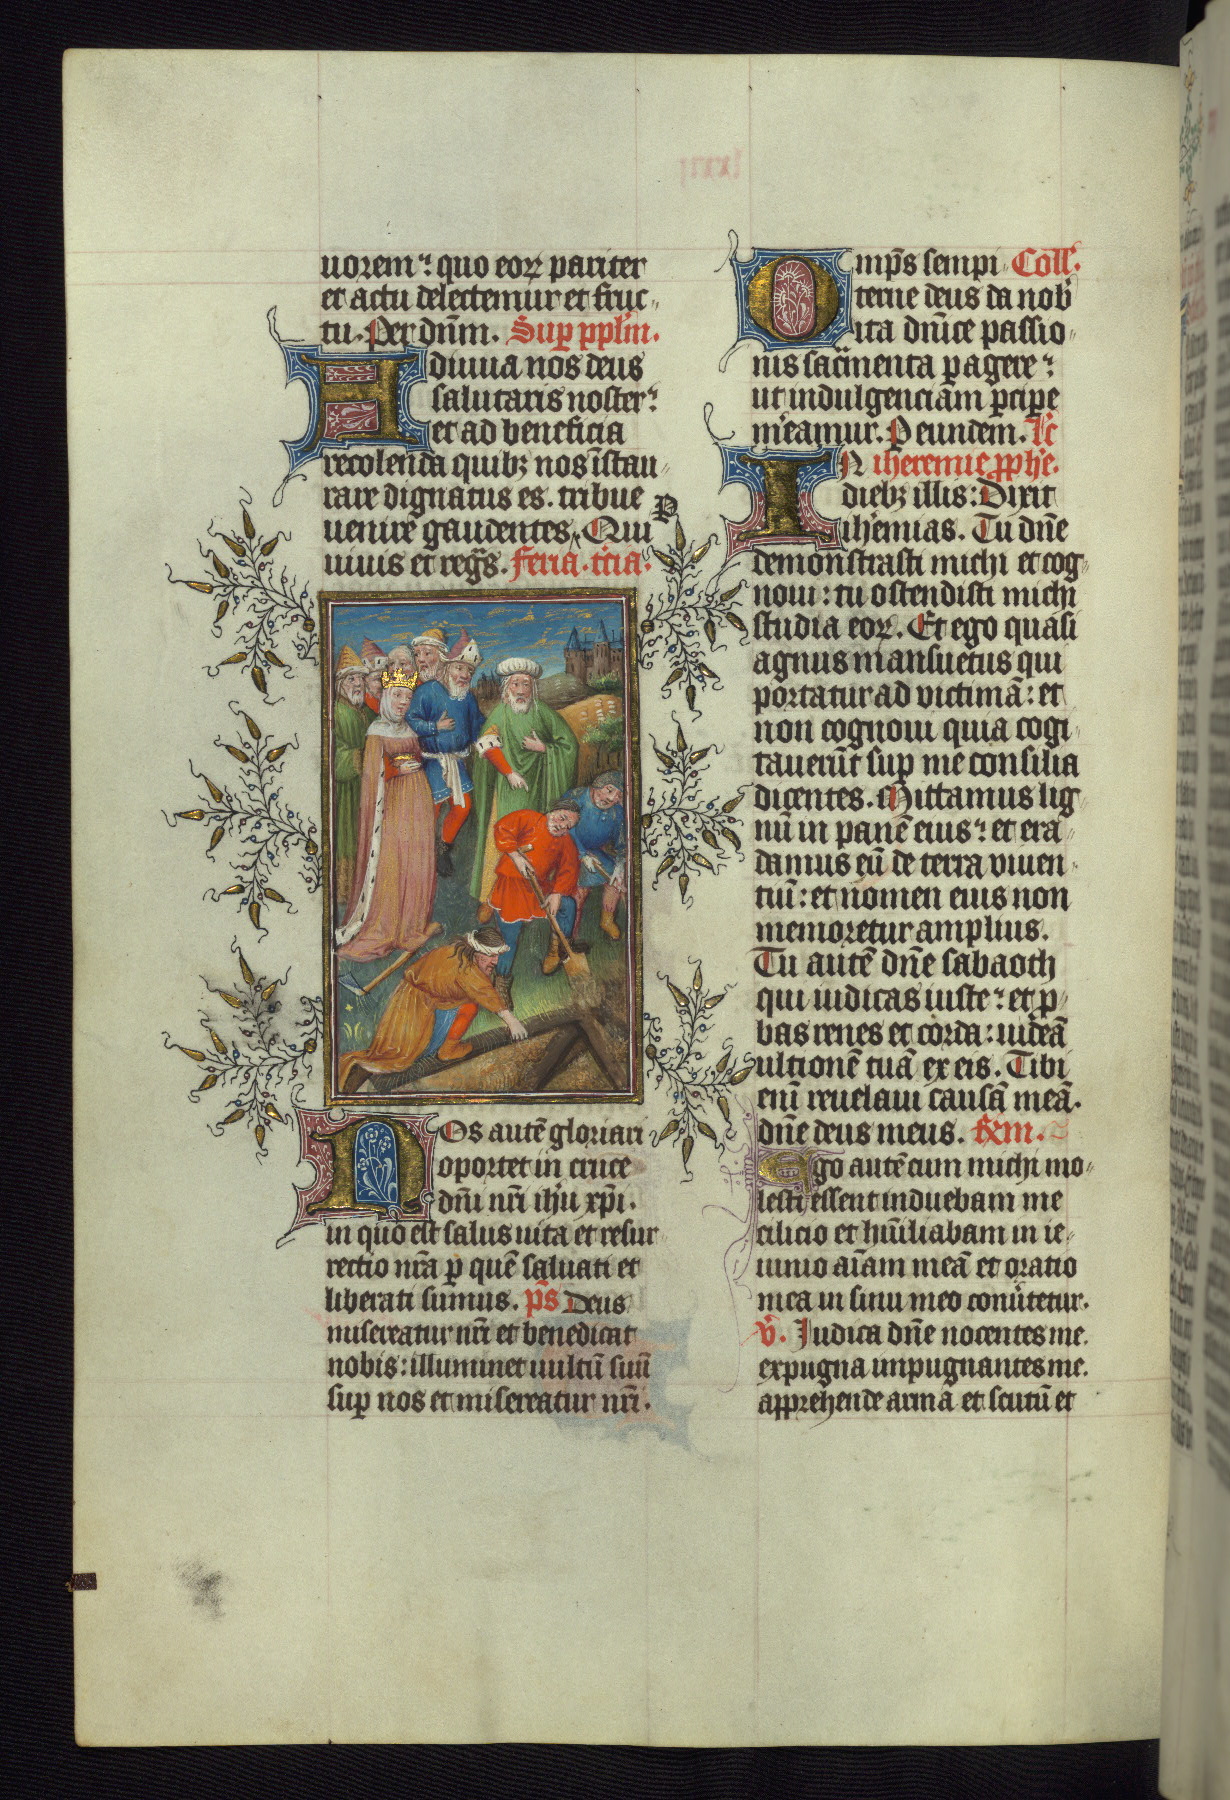 uorem: quo eoꝝ pariter
et actu delectemur et fruc-
tu. Per dn̄m. Sup ppl̄m.
Adiuua nos deus
salutaris noster:
et ad beneficia
recolenda quibꝫ nos īstau-
rare dignatus es. tribue
uenire gaudentes. Qui
uiuis et regn̄s. feria. t̄cia.
Nos autē gloriari
oportet in cruce
dn̄i nr̄i ih̄u xp̄i.
in quo est salus uita et resur-
rectio nr̄a ꝑ quē saluati et
liberati sumus. p̄s Deus
misereatur nr̄i et benedicat
nobis: illuminet uultū suū
suꝑ nos et misereatur nr̄i.
Omp̄s sempi- Coll̄.
terne deus da nob̄
ita dn̄ice passio-
nis sac̄menta ꝑagere:
ut indulgenciam ꝑcipe
m̄eamur. P eundem. lc̄
IN iheremie ꝓph̄e.
diebꝫ illis: Dixit
ih̄emias. Tu dn̄e
demonstrasti michi et cog-
noui: tu ostendisti michi
studia eoꝝ. Et ego quasi
agnus mansuetus qui
portatur ad victimā: et
non cognoui quia cogi-
tauerūt suꝑ me consilia
dicentes. Mittamus lig-
nū in panē eius: et era-
damus eū de terra viuen-
tiū: et nomen eius non
memoretur amplius.
Tu autē dn̄e sabaoth
qui iudicas iuste: et ꝓ-
bas renes et corda: uideā
ultionē tuā ex eis. Tibi
eni reuelaui causā meā.
dn̄e deus meus.
Ego autē cum michi mo-
lesti essent induebam me
cilicio et hūiliabam in ie-
iunio aīam meā et oratio
mea in sinu meo conūtetur.
v̄. Iudica dn̄e nocentes me.
expugna inpugnantes me.
apprehende arma et scutū et